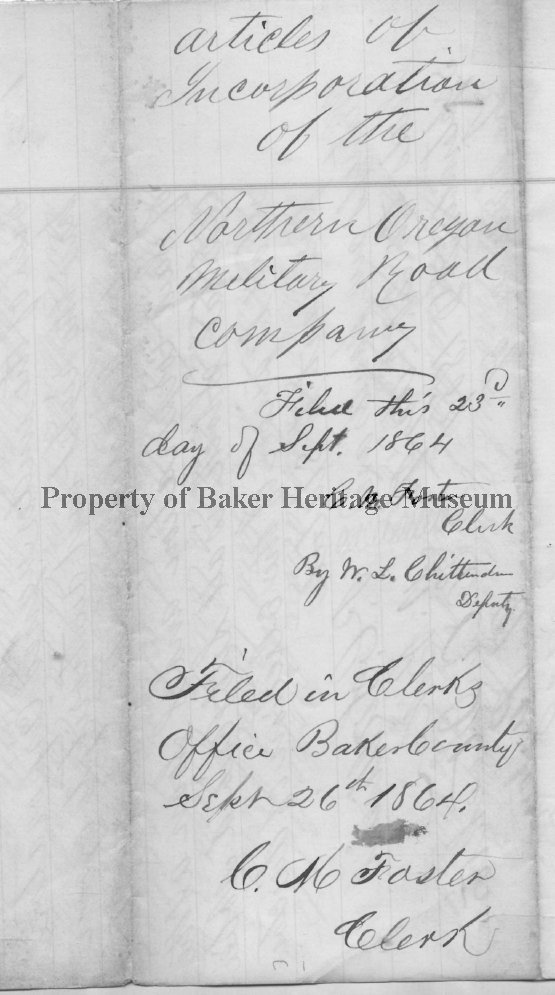 articles of
Incorporation
of the
Northern Oregon
Military Road
company
Filed this 23d
day of Sept. 1864
Property of Baker Heritage Museum
C. M. Foster
Clerk
By W. L. Chittenden
Deputy.
Filed in Clerks
Office Baker County
Sept 26th 1864.
C. M Foster
Clerk